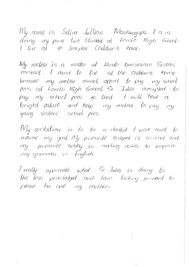 My name is Selina
doing my form two student at Loreto High School
I live at St Joseph Children's home.
My mother is a worker at Loreto
convent. I came to live at the Children's home
because my mother could not afford to pay my school
fees at Loreto High School. Sr Julia accepted to
pay my school fees so that I will have a
bright future and help my mother to pay my
young sisters school fees.
My ambition is to be a I work hard to
achieve my goal. My favourite subject is science and
my favourite hobby is reading books to improve
my grammar in English.
I really appreciate what Sr Julia is doing to
the less privileged and have looking forward to
please her and my mother.